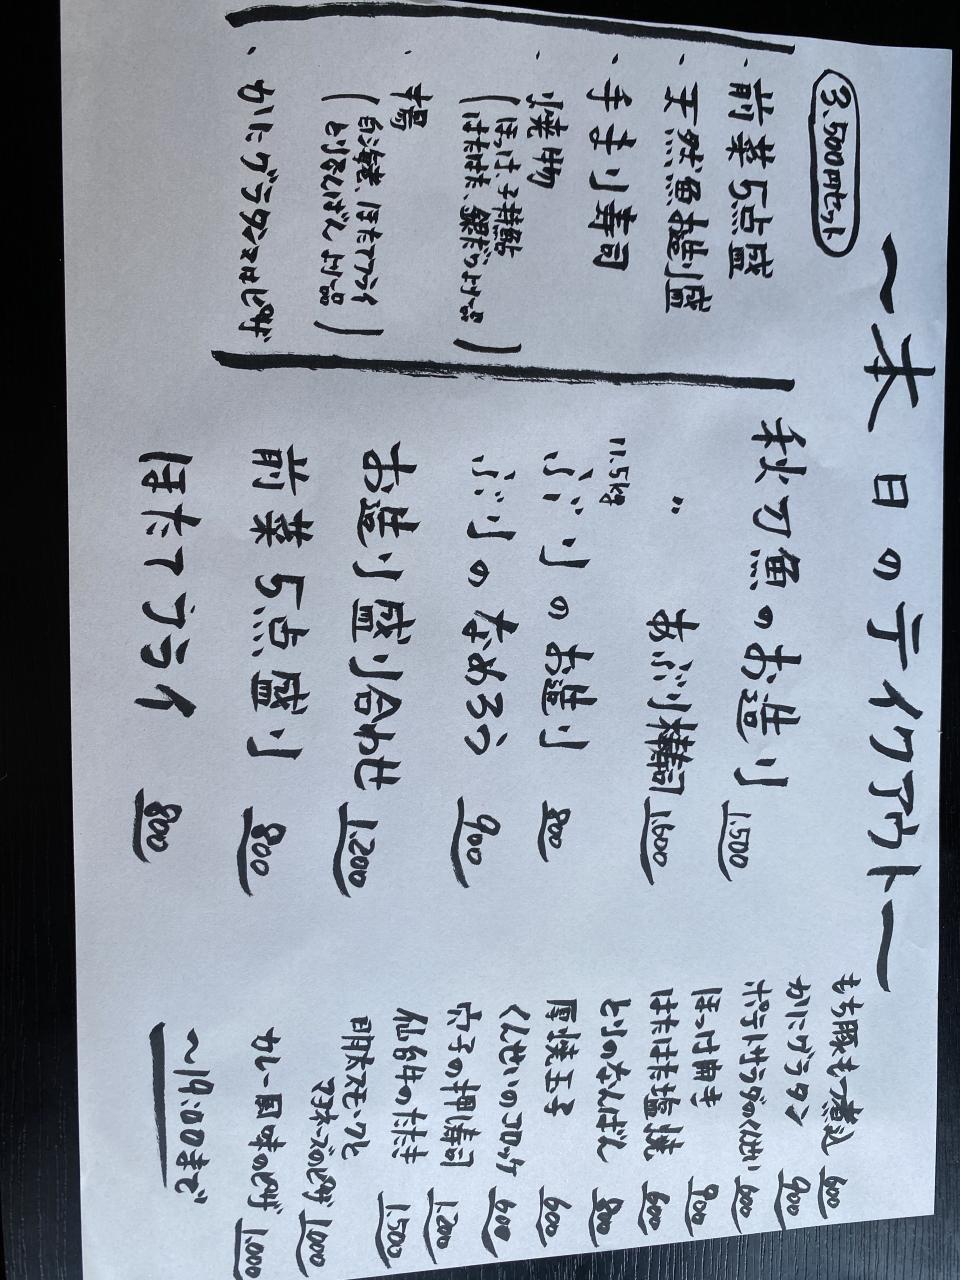 〜本日のテイクアウト〜
3,500円セット
・前菜5点盛
・天然魚お造り盛
・手まり寿司
・焼物
(ほっけ、子持鮎
はたはた、銀だらより一品)
・揚
(白海老、ほたてフライ
とりなんばん より一品)
・かにグラタン又はピザ
秋刀魚のお造り 1,500
〃 あぶり棒寿司 1,600
11.5kg
ぶりのお造り 800
ぶりのなめろう 900
お造り盛り合わせ 1,200
前菜5点盛り 800
ほたてフライ 800
もち豚もつ煮込 600
かにグラタン 900
ポテトサラダのくんせい 600
ほっけ開き 900
はたはた塩焼 600
とりのなんばん 800
厚焼玉子 600
くんせいのコロッケ 600
穴子の押し寿司 1,200
仙台牛のたたき 1,500
明太スモークと
マヨネーズのピザ 1,000
カレー風味のピザ 1,000
〜19:00まで